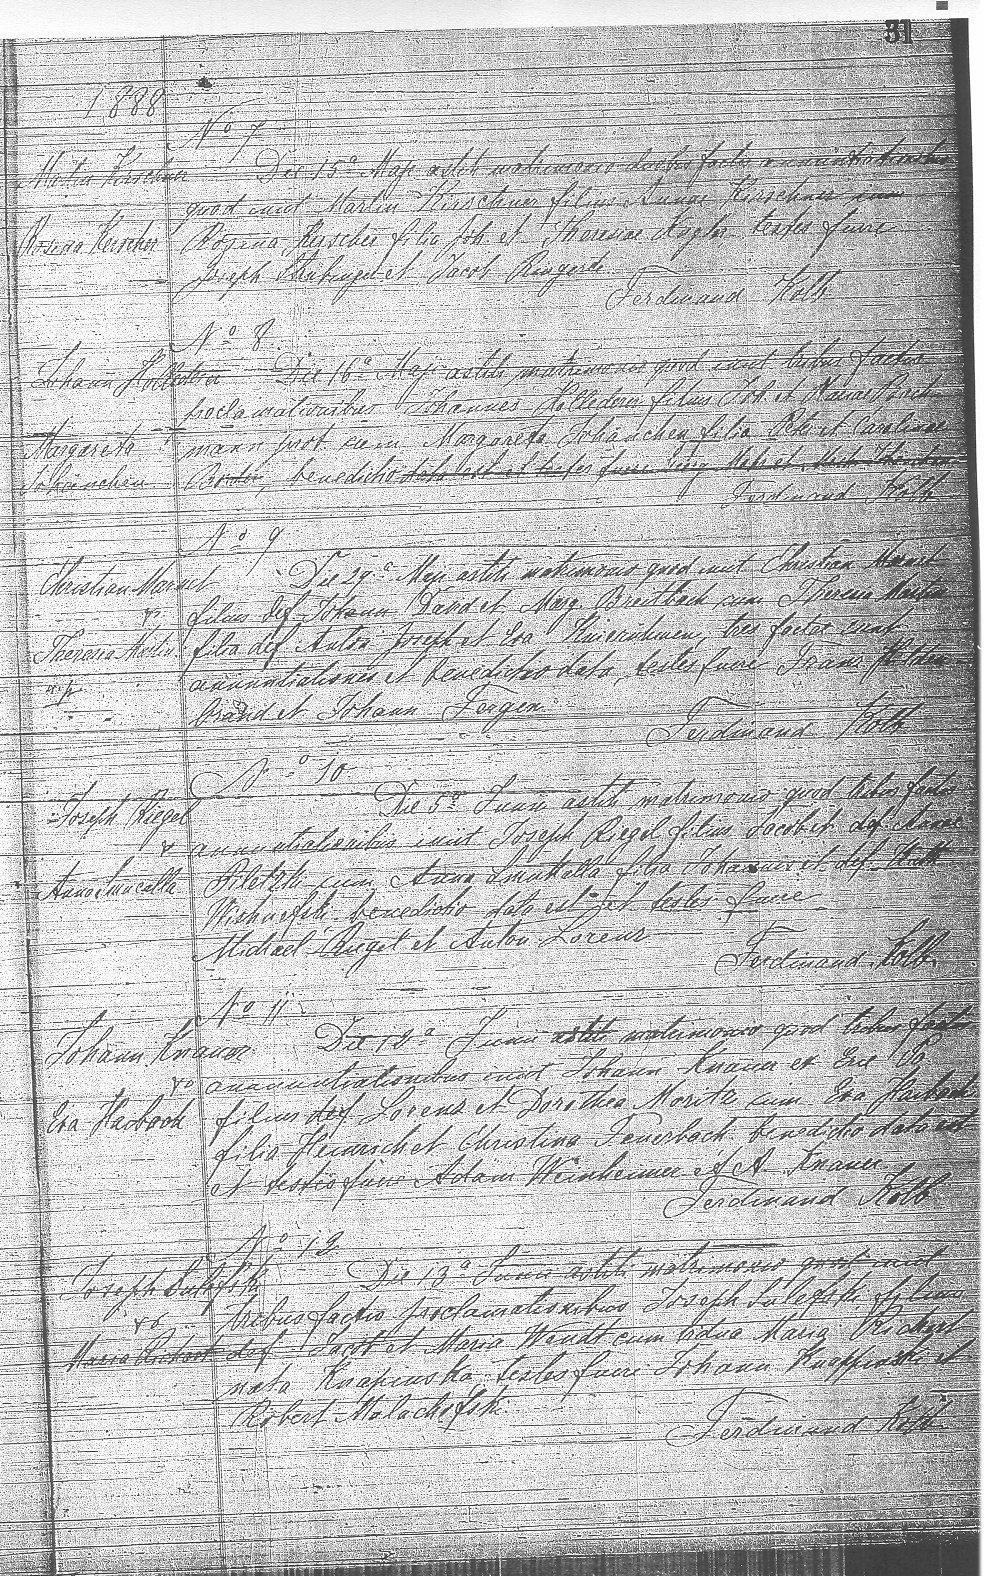 51
1888
No 7
Martin Kirschner
Rosina Kerscher
Die 15a Maji astiti matrimonio duabus factis annuntiationibus
quod iniit Martin Kirschner filius Annae Kirschner cum
Rosina Kerscher filia Joh et Theresae Kugler testes fuere
Joseph et Jacob
Ferdinand Kolb
No 8
Johann Hollederer
Margareta
Johänchen
Die 16a Maji astiti matrimonio quod iniit tribus factis
proclamationibus Johannes Hollederer filius Joh et
mann prot cum Margareta Johänchen filia Petr et Carolinae
benedictio data est et testes fuere Georg et
Ferdinand Kolb
No 9
Christian Marnet
&
Theresia Martin
Die 29a Maji astiti matrimonio quod iniit Christian Marnet
filius def Johann David et Marg. Breitbach cum Theresia Martin
filia def Anton Joseph et Eva tres factae sunt
annuntiationes et benedictio data, testes fuere Franz
brand et Johann Fergen
Ferdinand Kolb
No 10
Joseph Riegel
&
Anna Smukalla
Die 5a Junii astiti matrimonio quod tribus factis
annuntiationibus iniit Joseph Riegel filius Jacobi et def Annae
Piletzki cum Anna Smukalla filia Johannes et def
Wishnefski benedictio data est et testes fuere
Michael Riegel et Anton Lorenz
Ferdinand Kolb
No 11
Johann Knauer
&
Eva Harbach
Die 12a Junii astiti matrimonio quod tribus factis
annuntiationibus iniit Johann Knauer ex Erie Pa
filius def Lorenz et Dorothea Moritz cum Eva Harbach
filia Heinrich et Christina Feuerbach benedictio data est
et testes fuere Adam Weinheimer et A Knauer
Ferdinand Kolb
No 12
Joseph Sulefski
&
Maria Richert
Die 13a Junii astiti matrimonio quod iniit
tribus factis proclamationibus Joseph Sulefski filius
def Jacob et Maria Wendt cum vidua Maria Richert
nata Knapinska, testes fuere Johann Knappinski et
Robert Malachofski
Ferdinand Kolb